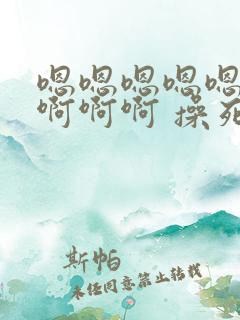 嗯嗯嗯嗯嗯
啊啊啊 操死
斯帕
未经同意禁止转载